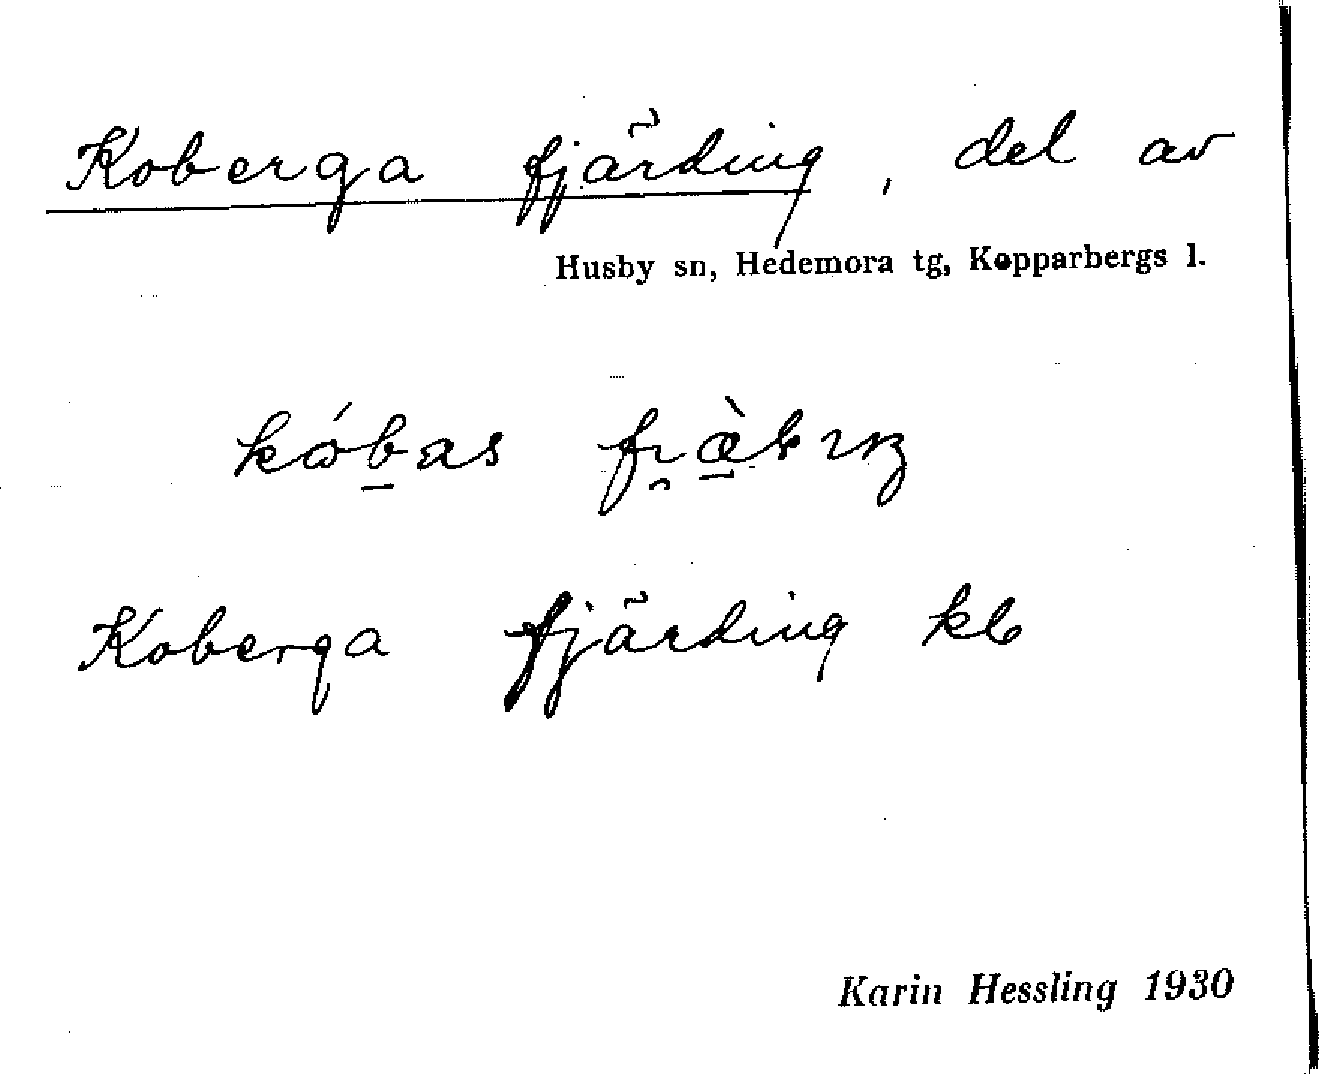 Koberga fjärding, del av
Husby sn, Hedemora tg, Kopparbergs l.
Koberga fjärding kb
Karin Hessling 1930